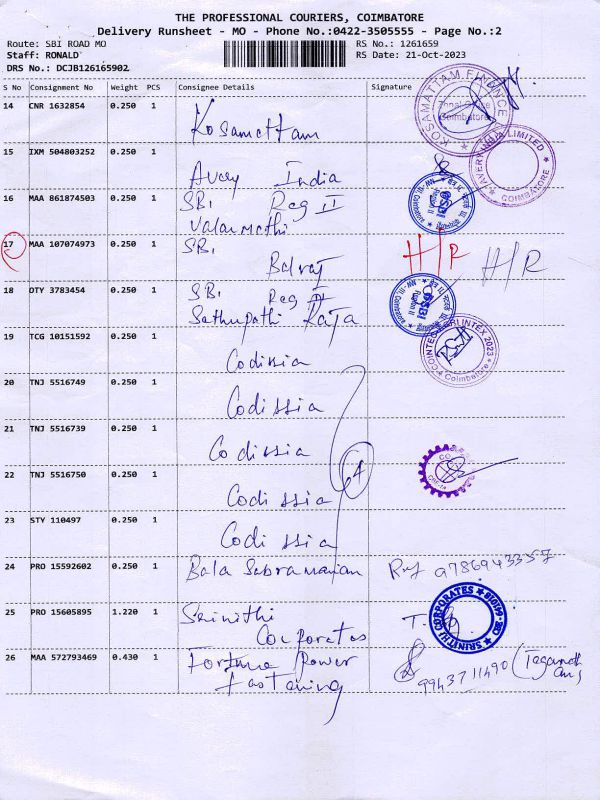 THE PROFESSIONAL COURIERS, COIMBATORE
Delivery Runsheet - MO - Phone No.:0422-3505555 - Page No.:2
Route: SBI ROAD MO RS No.: 1261659
Staff: RONALD RS Date: 21-Oct-2023
DRS No.: DCJB126165902
S No Consignment No Weight PCS Consignee Details Signature
14 CNR 1632854 0.250 1 Kosamattam
KOSAMATTAM FINANCE
Zonal Office
Coimbatore
15 IXM 504803252 0.250 1 Avery India
AVERY INDIA LIMITED
COIMBATORE
16 MAA 861874503 0.250 1 SBI Reg II
Valarmathi
SBI
Region II
17 MAA 107074973 0.250 1 SBI H/R H/R
Balraj
18 DTY 3783454 0.250 1 SBI Reg II
Sathupathi Raja
SBI
19 TCG 10151592 0.250 1 Codissia
INTEX 2023
Coimbatore
20 TNJ 5516749 0.250 1 Codissia
21 TNJ 5516739 0.250 1 Codissia
22 TNJ 5516750 0.250 1 Codissia
23 STY 110497 0.250 1 Codissia
24 PRO 15592602 0.250 1 Bala Sabramanian 9786943357
25 PRO 15605895 1.220 1 Srinithi
Corporates
SRINITHI CORPORATES
CBE-641018
26 MAA 572793469 0.430 1 Fortune Power
Fastening
9943711490